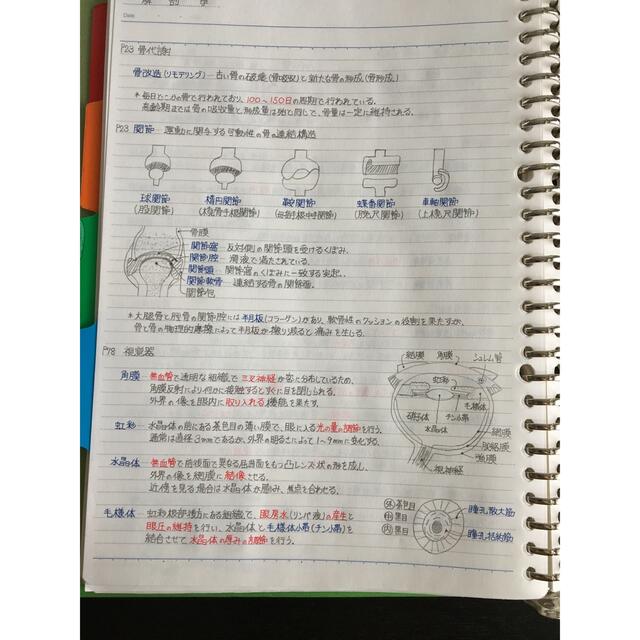 解剖学
Date
P23 骨代謝
骨改造(リモデリング) ― 古い骨の破壊(骨吸収)と新たな骨の形成(骨形成)
*毎日どこかの骨で行われており、100〜150日の周期で行われている。
高齢期までは骨の吸収量と形成量は殆ど同じで、骨量は一定に維持される。
P23 関節 ― 運動に関与する可動性の骨の連結構造
球関節 楕円関節 鞍関節 蝶番関節 車軸関節
(股関節) (橈骨手根関節) (母指手根中手関節) (腕尺関節) (上橈尺関節)
骨膜
関節窩 反対側の関節頭を受けるくぼみ。
関節腔 滑液で満たされている。
関節頭 関節窩のくぼみに一致する突起。
関節軟骨 連結する骨の関節面。
関節包
*大腿骨と脛骨の関節腔には半月板(コラーゲン)があり、軟骨性のクッションの役割を果たすが、
骨と骨の物理的摩擦によって半月板が擦り減ると痛みを生じる。
P78 視覚器
角膜 ― 無血管で透明な組織で三叉神経が密に分布しているため、
角膜反射により何かに接触するとすぐに目を閉じられる。
外界の像を眼内に取り入れる機能を果たす。
虹彩 ― 水晶体の前にある茶色目の薄い膜で、眼に入る光の量の調節を行う。
通常は直径3mmであるが、外界の明るさによって1〜9mmに変化する。
水晶体 ― 無血管で前後面で異なる屈曲面をもつ凸レンズ状の形を成し、
外界の像を網膜に結像させる。
近傍を見る場合は水晶体が厚み、焦点を合わせる。
毛様体 ― 虹彩根部後方にある組織で、眼房水(リンパ液)の産生と
眼圧の維持を行い、水晶体と毛様体小帯(チン小帯)を
結合させて水晶体の厚みの調節を行う。
結膜 角膜 シュレム管
虹彩
毛様体
硝子体 チン小帯
水晶体
網膜
脈絡膜
強膜
視神経
茶色目
黒目
黒目
瞳孔散大筋
瞳孔括約筋